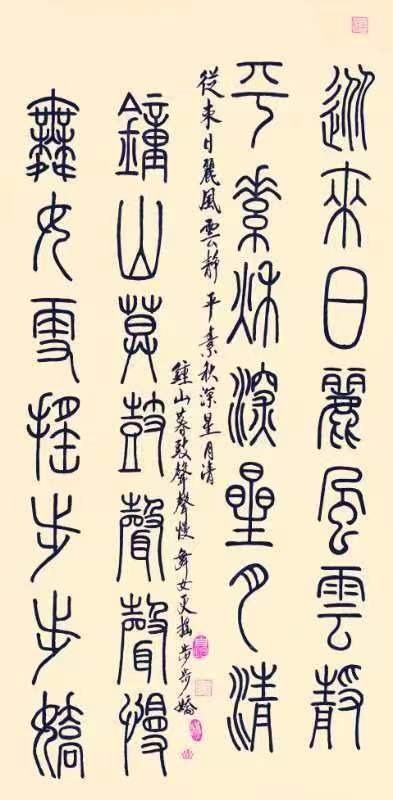 從來日麗風雲靜
平素秋深星月清
從来日麗風雲静 平素秋深星月清
鐘山暮鼓聲聲慢 舞女摇步步嬌
鐘山莫鼓聲聲慢
舞女搖步步嬌